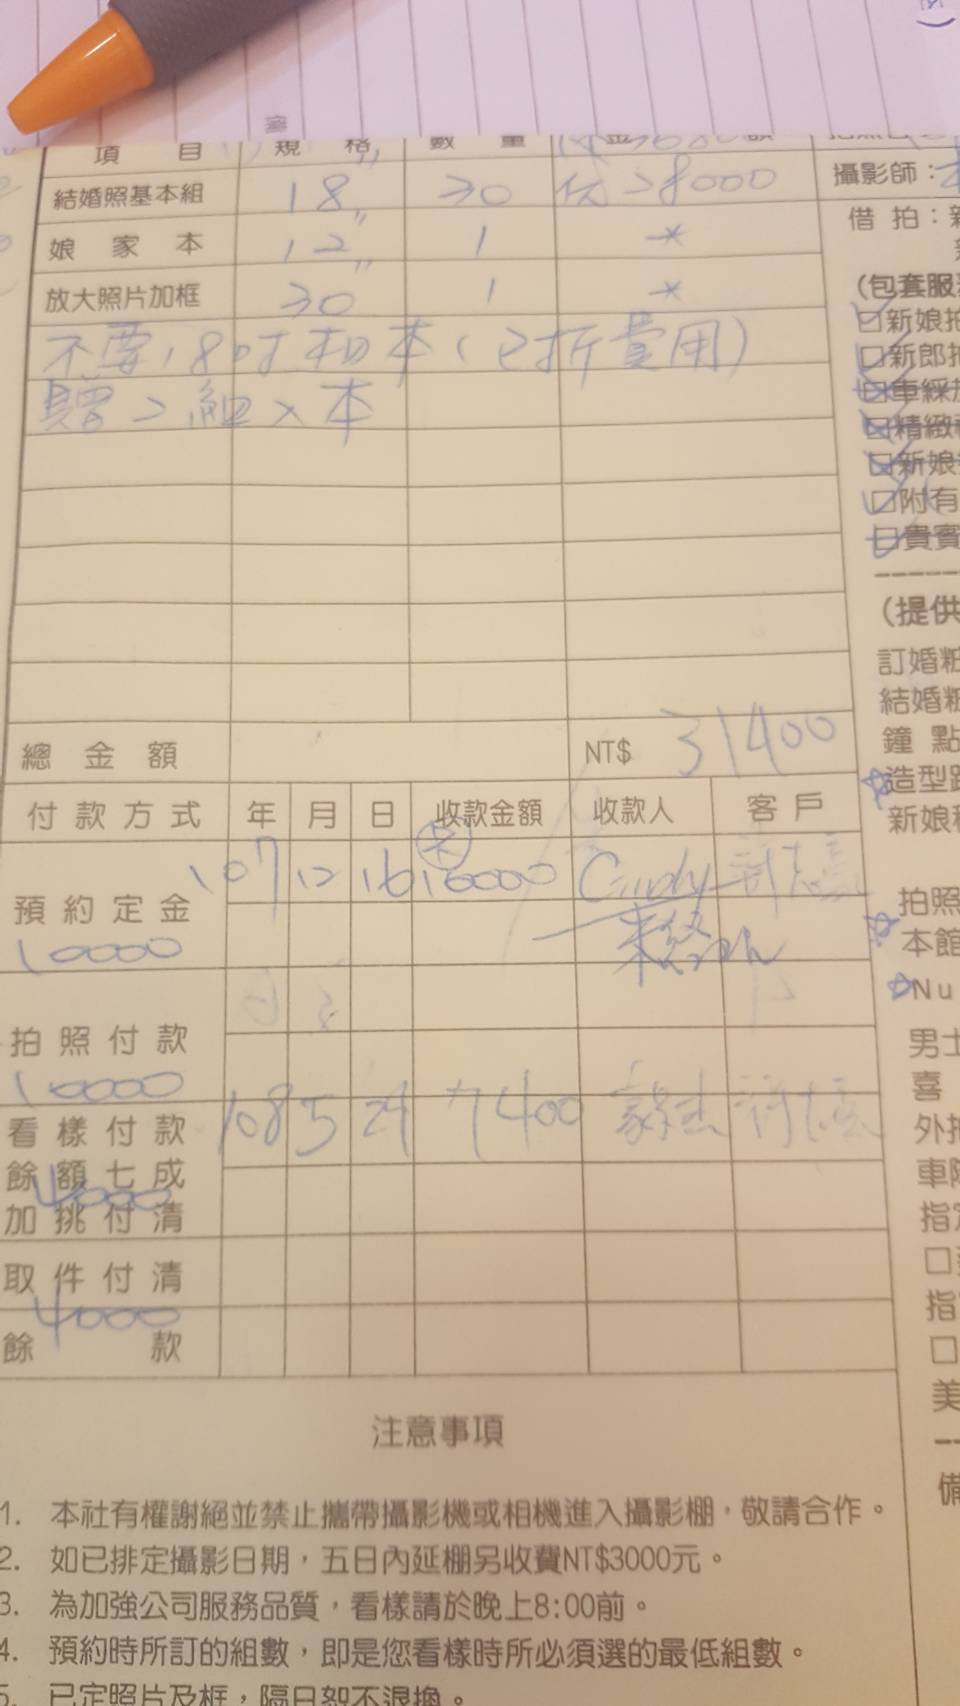 項 目 規 格 數 量 金 額
攝影師：
結婚照基本組 18" 30 28000
借 拍：
娘 家 本 12" 1
(包套服
放大照片加框 30" 1
□新娘拍
不要18吋相本(已折費用)
□新郎
□車綵
贈2組入本
□精緻
□新娘
□附有
□貴賓
(提供
訂婚粧
結婚粧
總 金 額 NT$ 31400
鐘 點
造型
付 款 方 式 年 月 日 收款金額 收款人 客 戶
新娘
107 12 16 16000 Cindy
預 約 定 金
10000
拍照
本館
Nu
拍 照 付 款
10000
男士
喜
看 樣 付 款 108 5 7400
外拍
餘 額 七 成
4000
加 挑 付 清
車
指
取 件 付 清
4000
指
餘 款
美
注意事項
備
1. 本社有權謝絕並禁止攜帶攝影機或相機進入攝影棚，敬請合作。
2. 如已排定攝影日期，五日內延棚另收費NT$3000元。
3. 為加強公司服務品質，看樣請於晚上8:00前。
4. 預約時所訂的組數，即是您看樣時所必須選的最低組數。
5. 已定照片及框，隔日恕不退換。